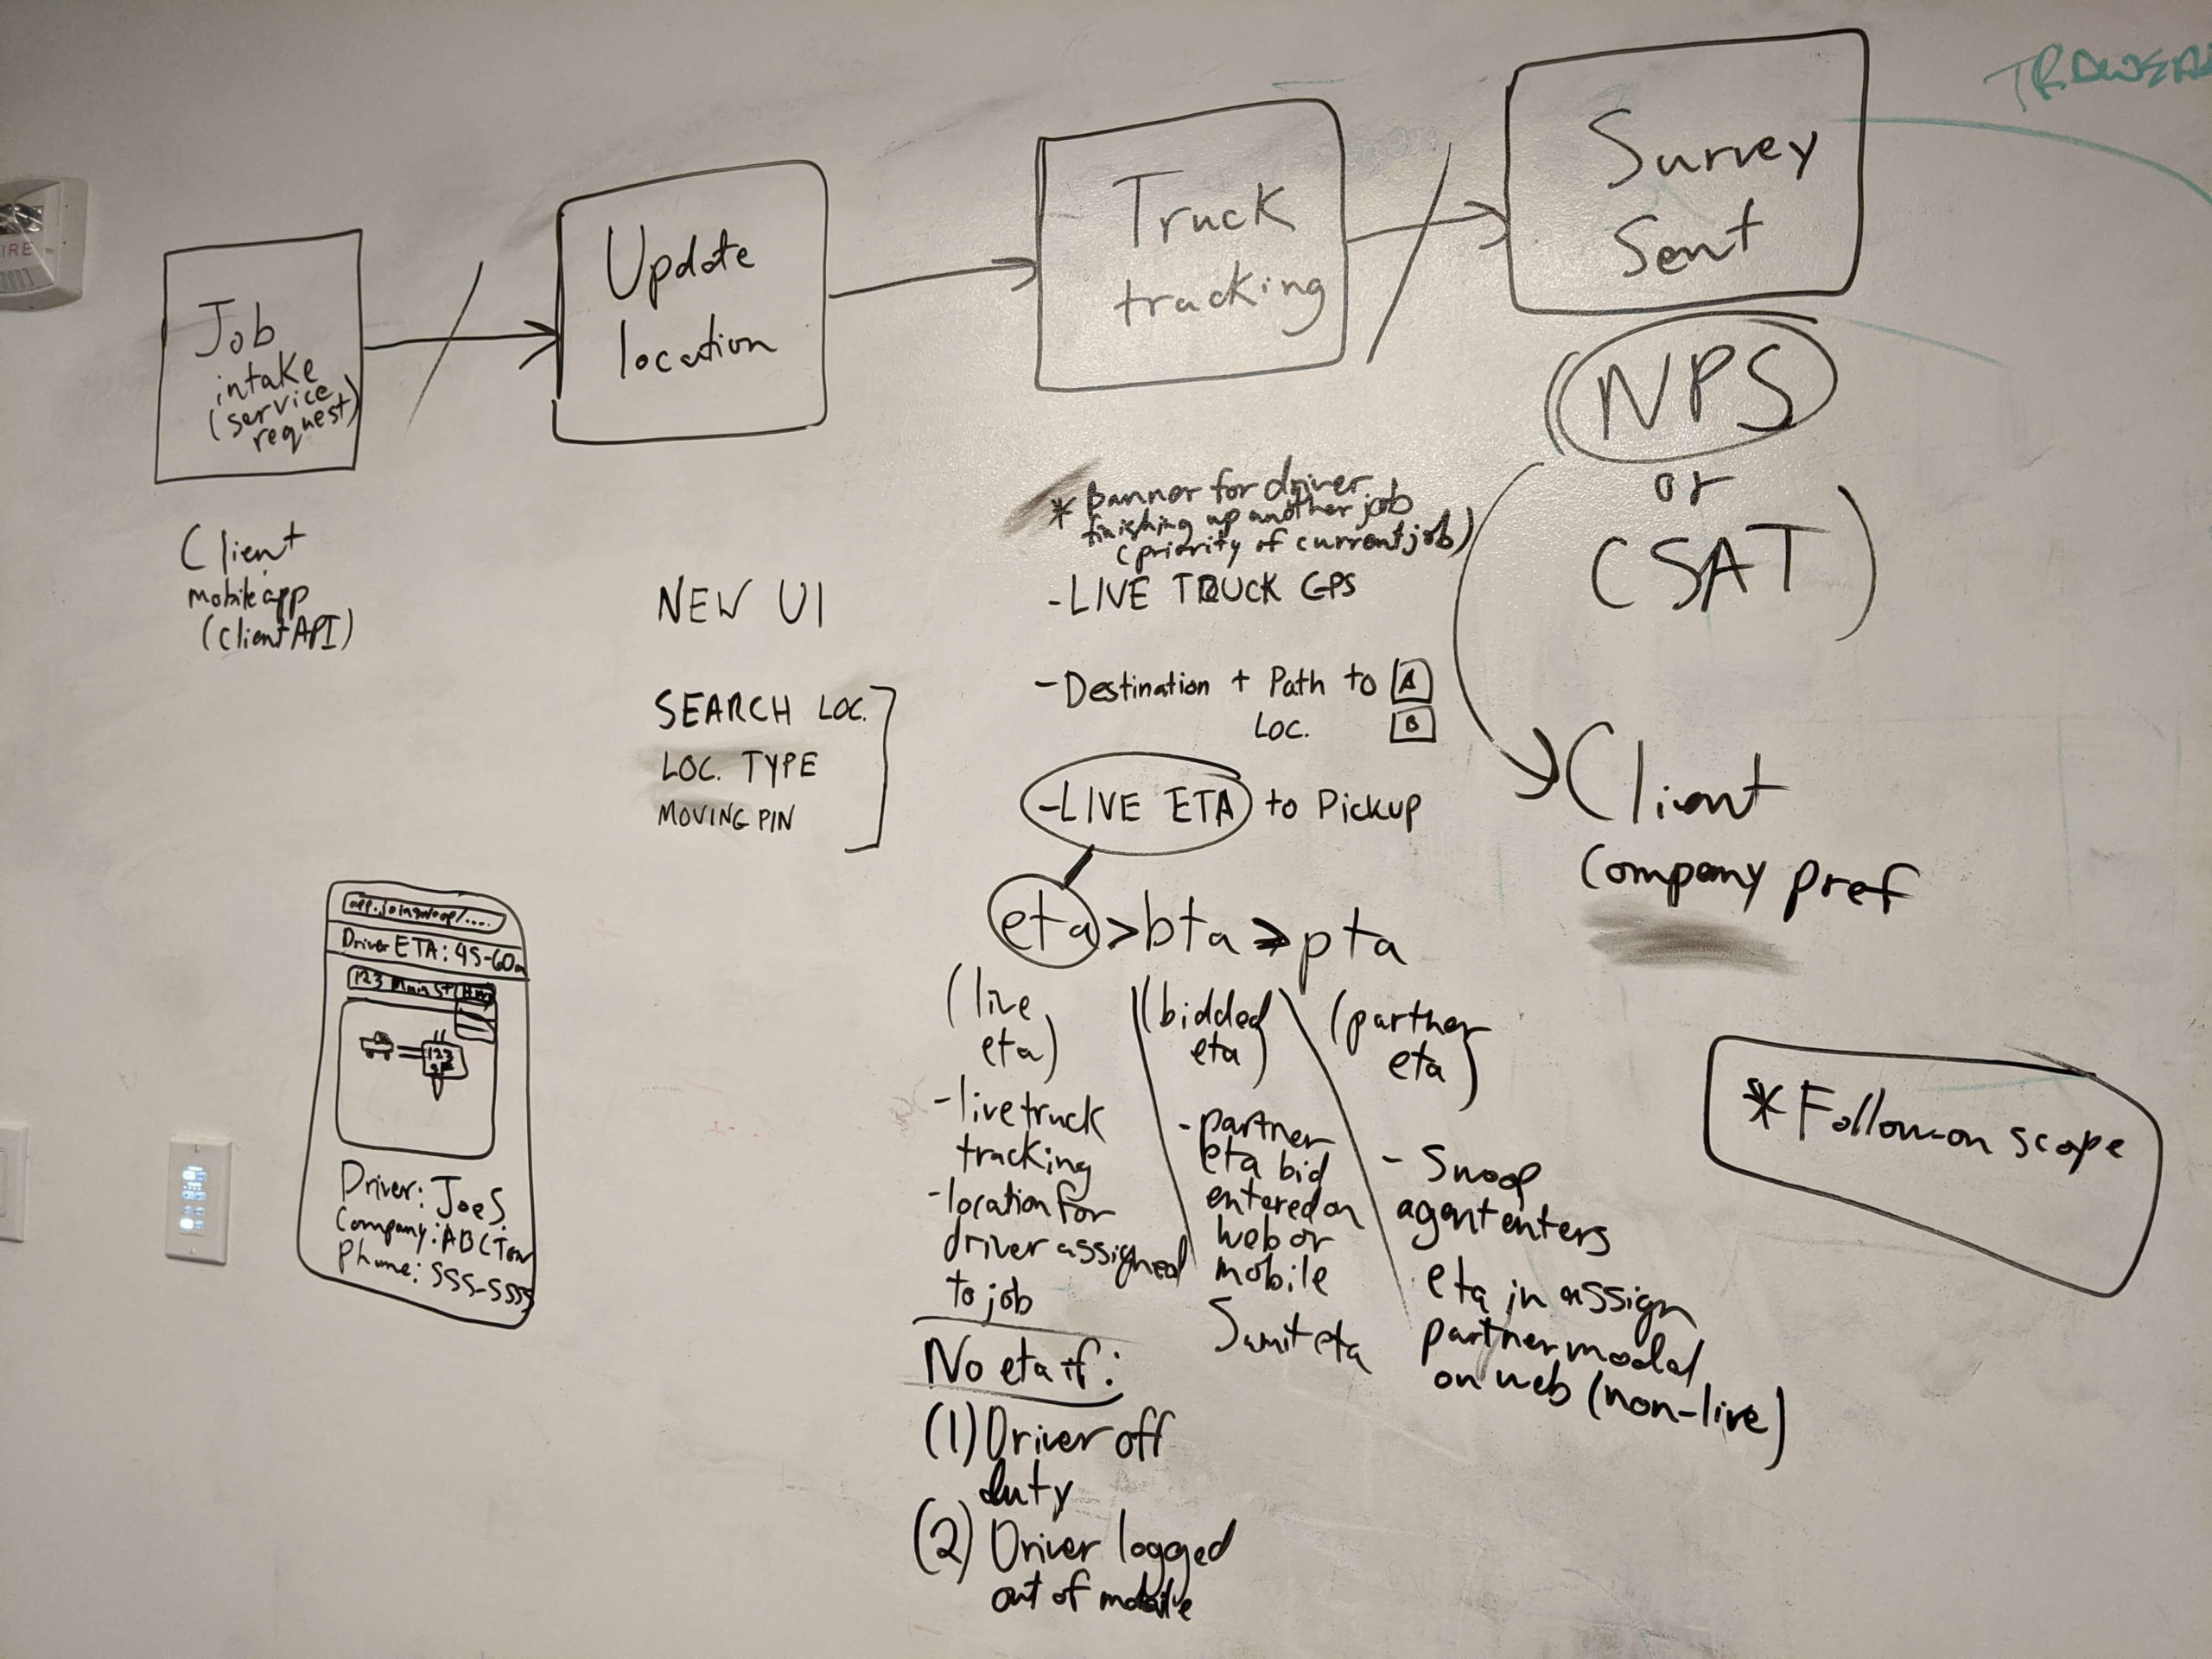 IRE
Job
intake
(service
request)
Update
location
Truck
tracking
Survey
Sent
Client
mobile app
(client API)
NEW UI
SEARCH LOC.
LOC. TYPE
MOVING PIN
* Banner for driver
finishing up another job
(priority of current job)
-LIVE TRUCK GPS
-Destination + Path to A
LOC. B
-LIVE ETA to Pickup
eta > bta > pta
(live
eta)
-live truck
tracking
-location for
driver assigned
to job
No eta if:
(1) Driver off
duty
(2) Driver logged
out of mobile
(bidded
eta)
-partner
eta bid
entered on
web or
mobile
(partner
eta)
- Swoop
agent enters
eta in assign
partner modal
on web (non-live)
(NPS
or
CSAT)
Client
Company pref
* Follow-on scope
app.joinswoop/....
Driver ETA: 45-60m
123 Main St
123
Driver: Joe S.
Company: ABC Tow
Phone: 555-5555